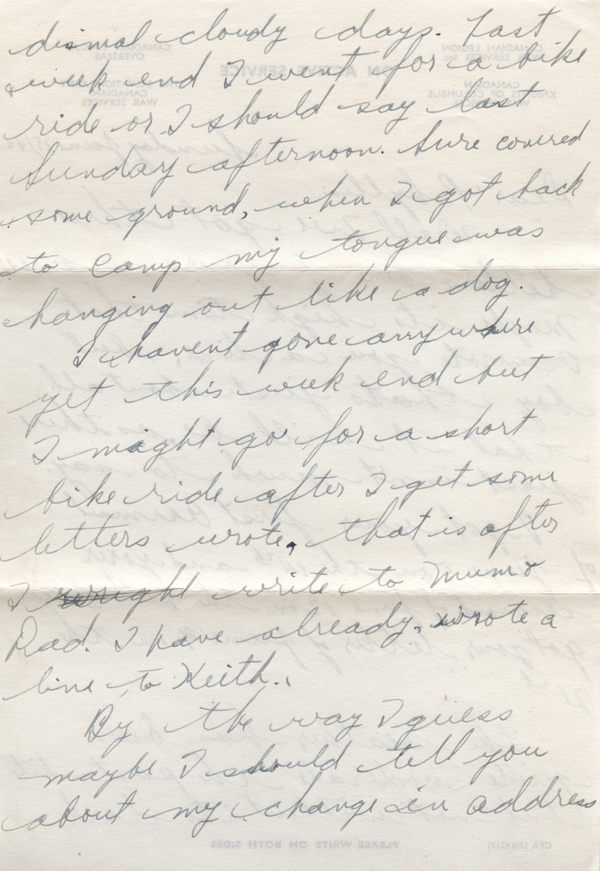 dismal cloudy days. Last
week end I went for a bike
ride or I should say last
Sunday afternoon. Sure covered
some ground, when I got back
to camp my tongue was
hanging out like a dog.
I havent gone anywhere
yet this week end but
I might go for a short
bike ride after I get some
letters wrote, that is after
I write to Mum &
Dad. I have already, wrote a
line to Keith.
By the way I guess
maybe I should tell you
about my change in address